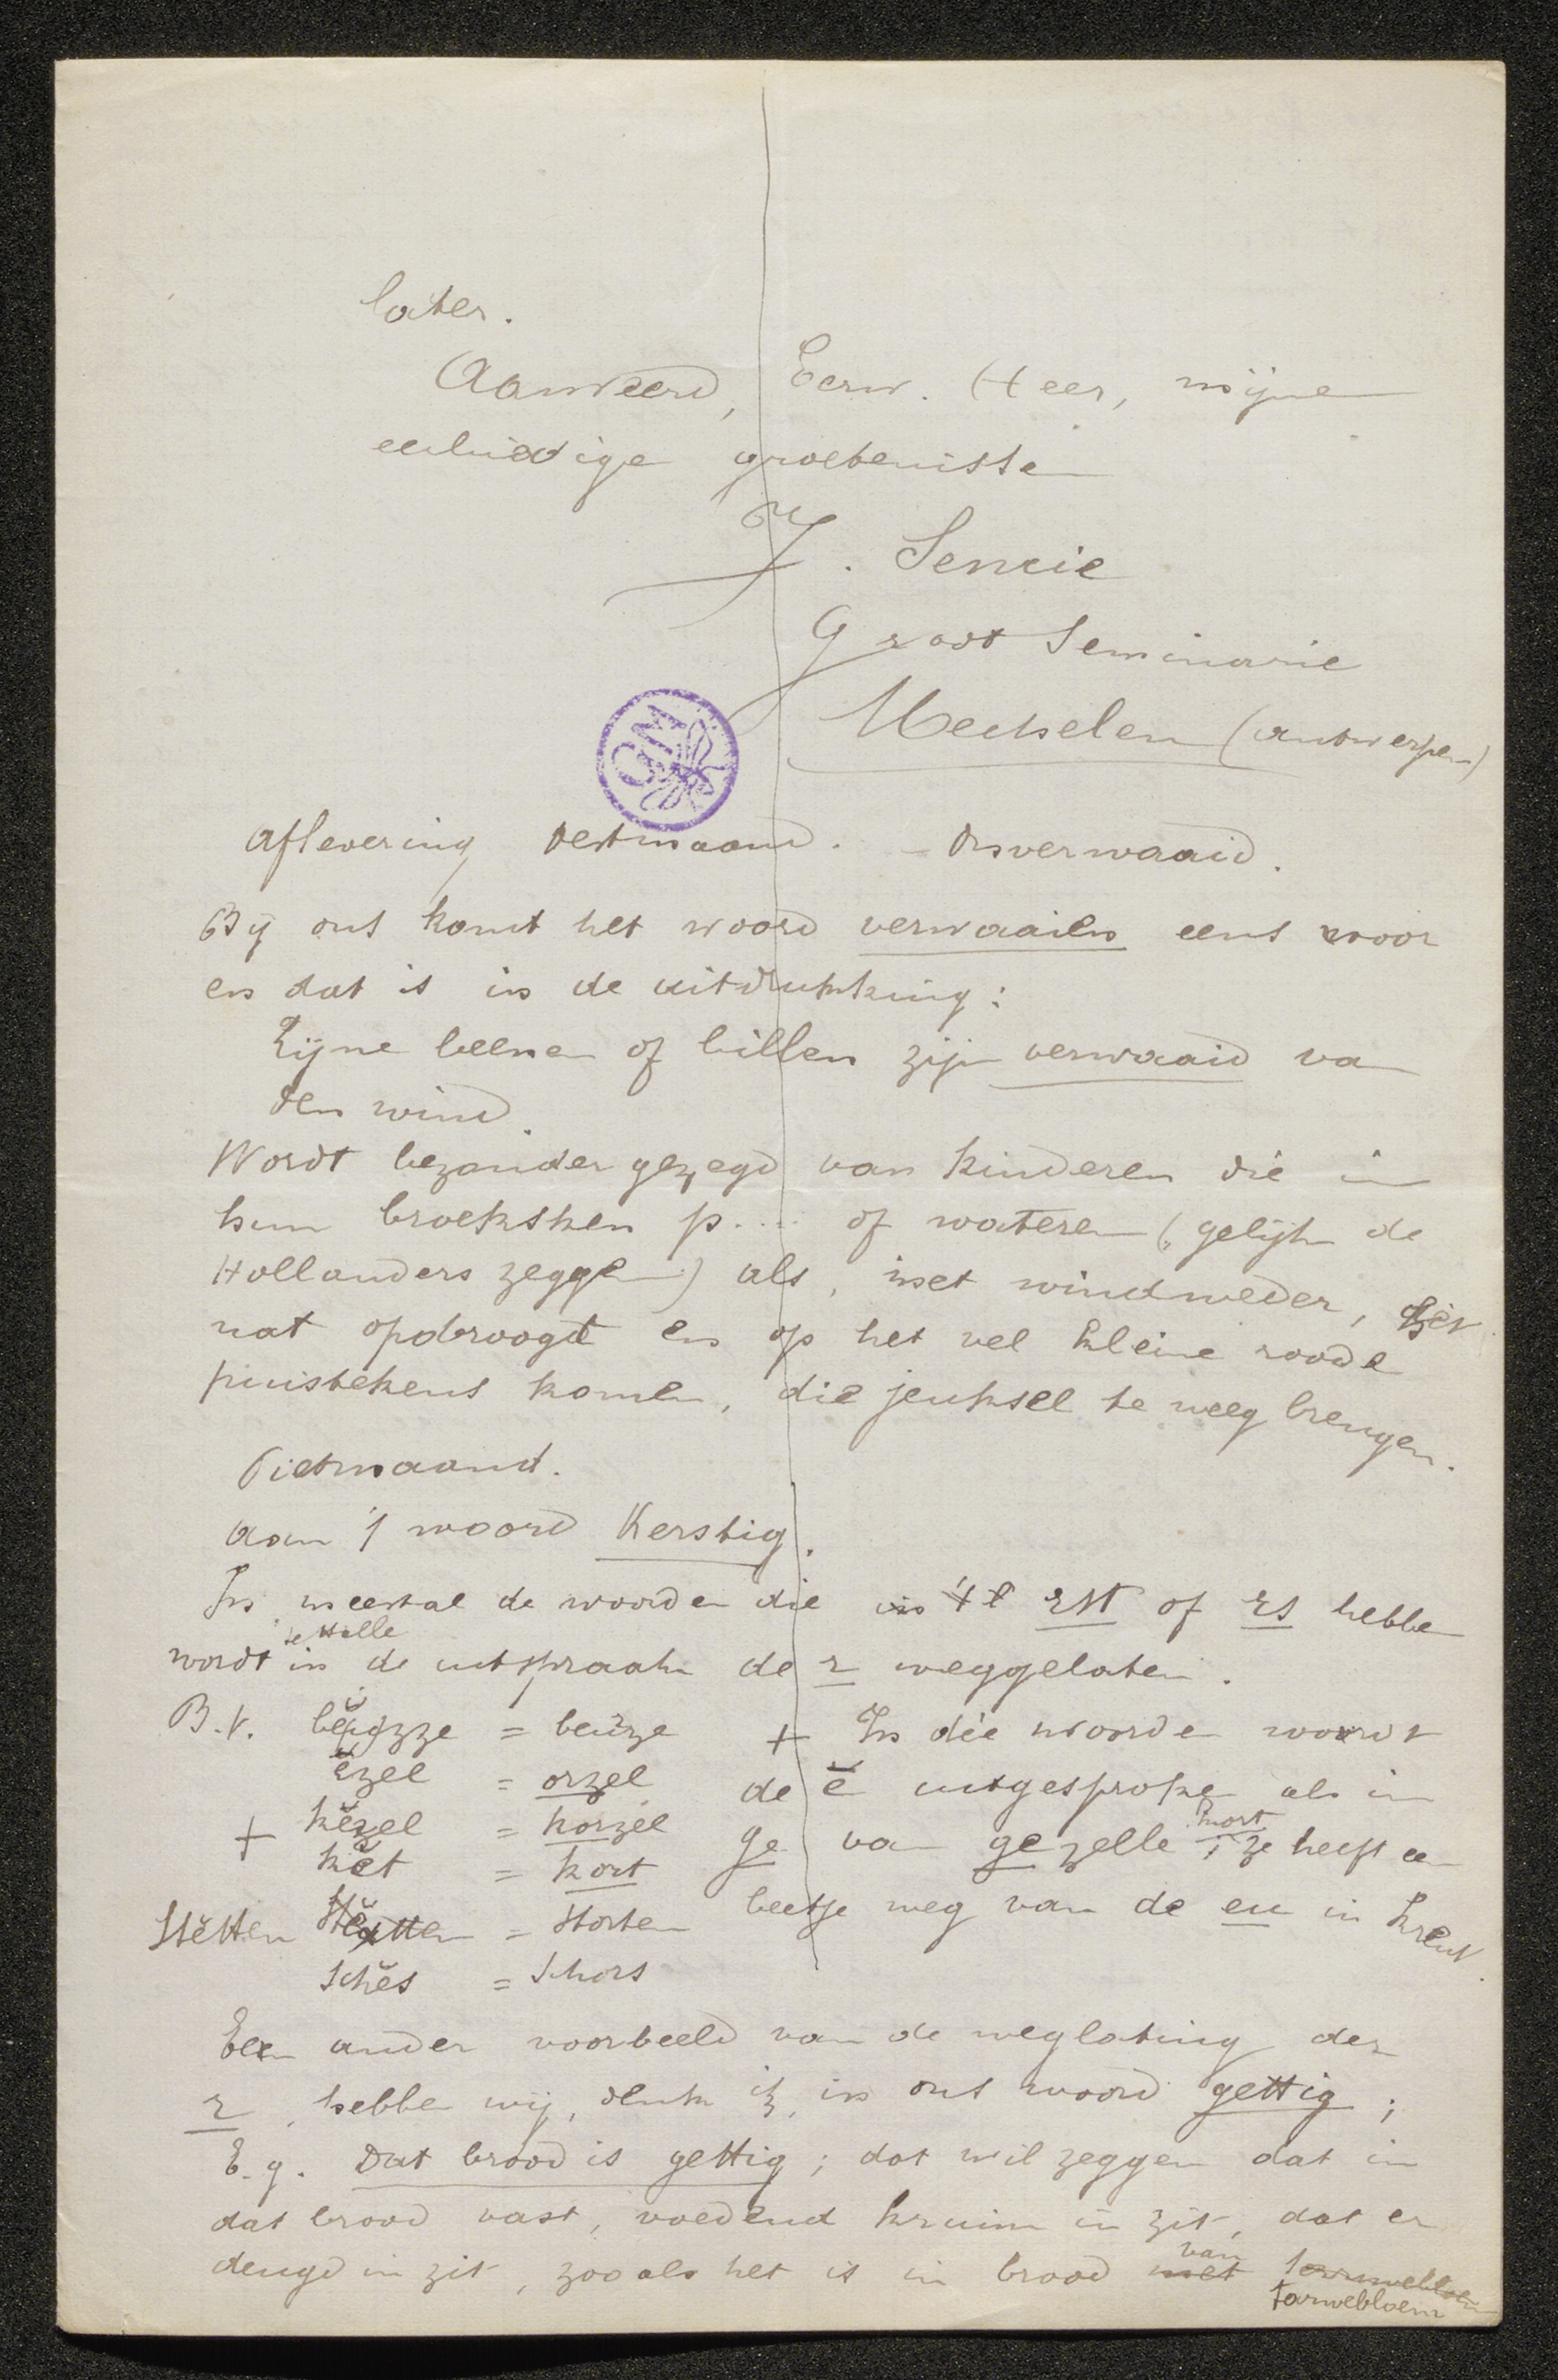 later.
Aanveerd, Eerw. Heer, mijne
eerbiedige groetenisse
J. Sencie
Groot Seminarie
Mechelen (Antwerpen)
GM
Aflevering Oestmaand. - Onverwaaid.
Bij ons komt het woord verwaaien eens voor
en dat is in de uitdrukking:
Zijne beenen of billen zijn verwaaid van
den wind.
Wordt bezonder gezegd van kinderen die in
hun broeksken p.... of wateren (gelijk de
Hollanders zeggen) als, met windweder, het
nat opdroogt en op het vel kleine roode
puistekens komen, die jeuksel te weeg brengen.
Pietmaand.
Aan 't woord Kerstig.
In meestal de woorden die in 't rst of rs hebben
te Halle
wordt in de uitspraak de r weggelaten.
B.v. = beurze + In die woorden wordt
ĕzel = orzel de ĕ uitgesproken als in
kort
+ kĕzel = korzel ge van gezelle; ze heeft een
kĕt = kort beetje weg van de eu in kreut.
Stĕtten Stĕtten = Storten
Schĕs = Schors
Een ander voorbeeld van de weglating der
r hebben wij, denk ik, in ons woord gettig;
E.g. Dat brood is gettig; dat wil zeggen dat in
dat brood vast, voedend kruim in zit, dat er
van
deugd in zit, zooals het is in brood met tarwebloem
tarwebloem